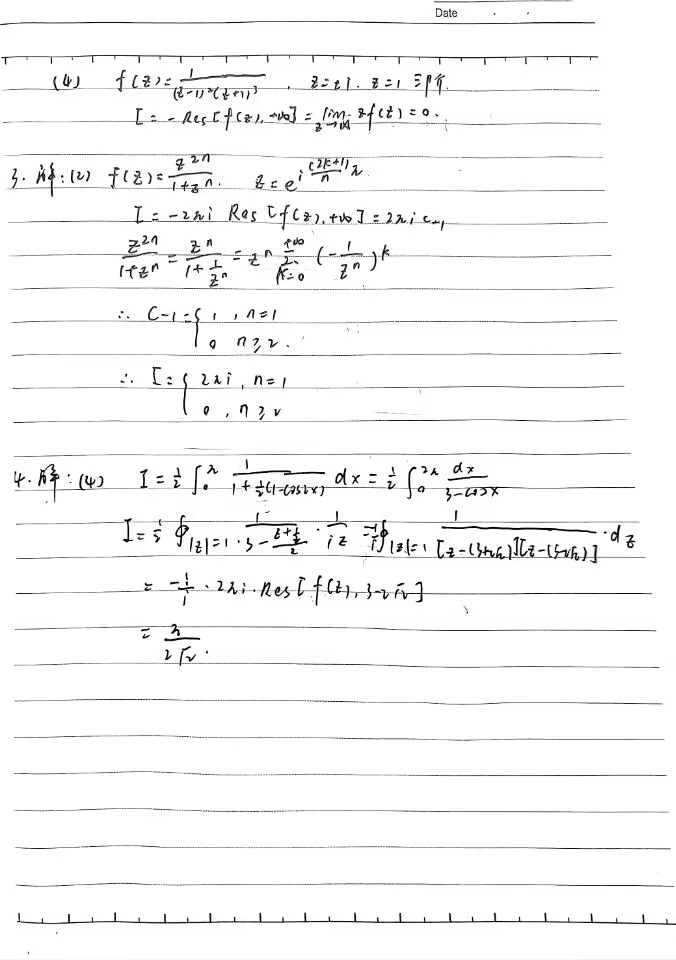 Date . .
(4) f(z)=1/((z-1)²(z+1)³) , z=±1. z=1
I=-Res[f(z),+∞]=lim z→∞ zf(z)=0.
3.解:(2) f(z)=z^{2n}/(1+z^n). z=e^{i(2k+1)/n π}
I=-2πi Res[f(z),+∞]=2πi c₋₁
z^{2n}/(1+z^n)=z^n/(1+1/z^n)=z^n Σ_{k=0}^{+∞}(-1/z^n)^k
∴ C-1={1, n=1
0 n≥2.
∴ I={2πi, n=1
0, n≥2
4.解:(4) I=½∫₀^π 1/(1+½(1-cos2x)) dx=½∫₀^{2π} dx/(3-cosx)
I= ∮_{|z|=1} 1/(3-(z+1/z)/2)·1/(iz) =-1/i ∮_{|z|=1} 1/([z-(3+2√2)][z-(3-2√2)])·dz
=-1/i·2πi·Res[f(z),3-2√2]
=π/(2√2).